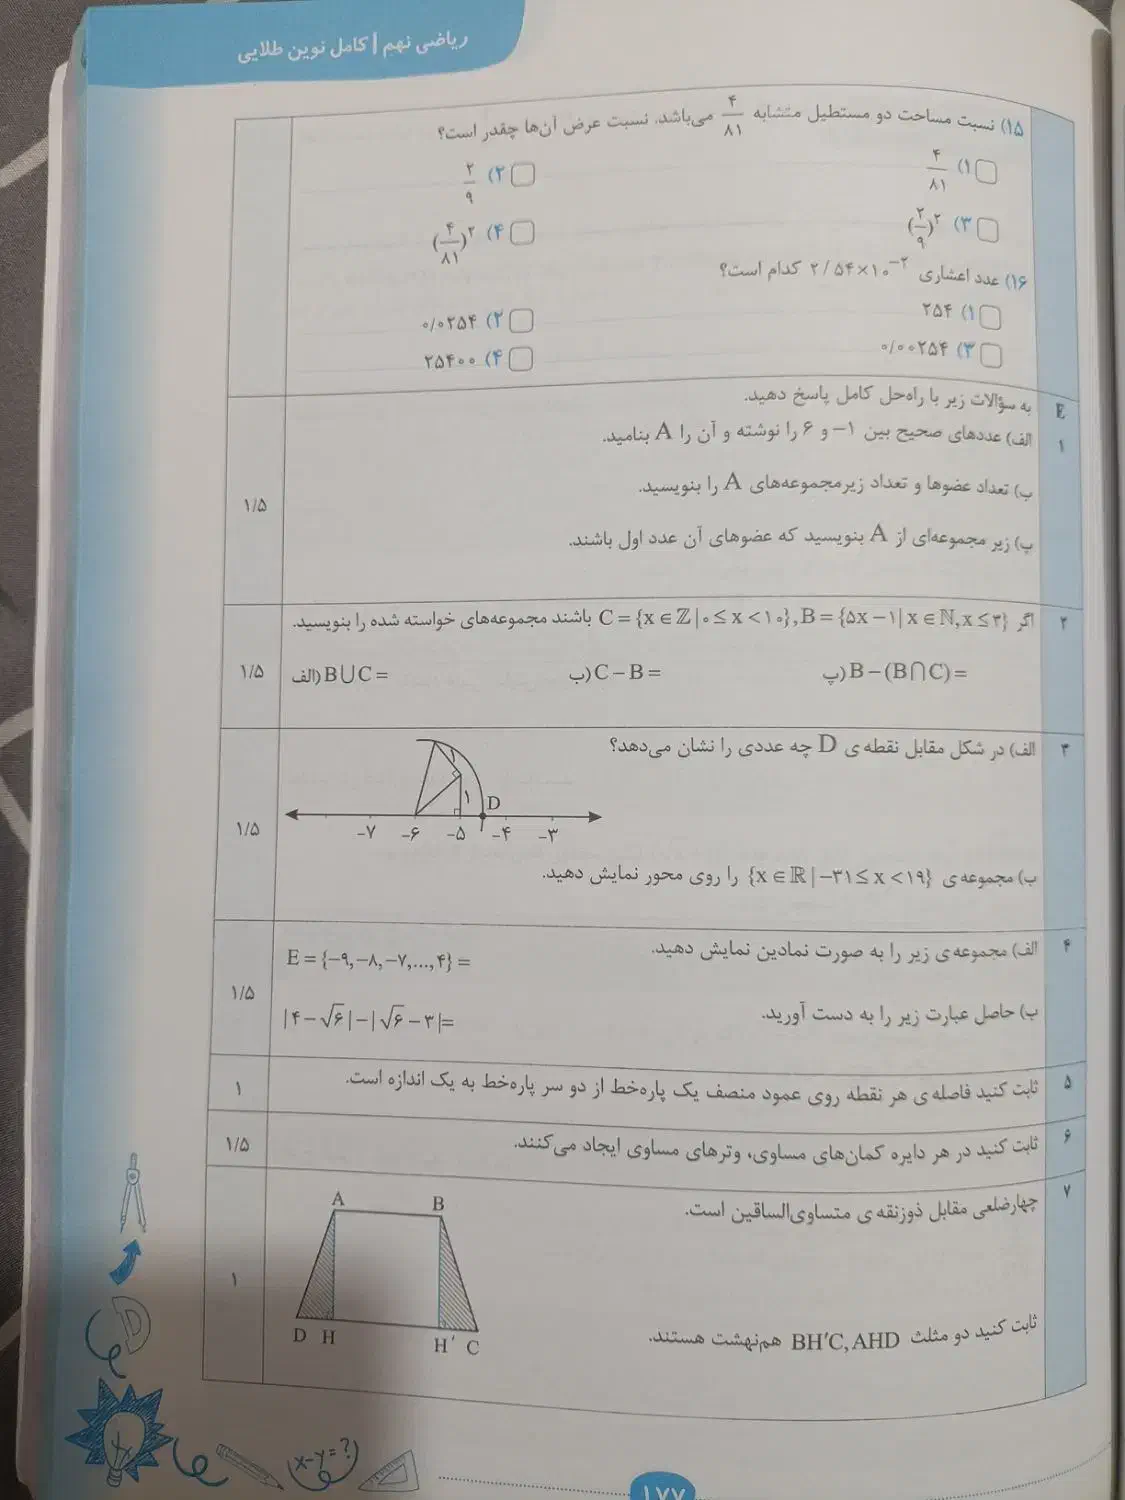 ریاضی نهم | کامل نوین طلایی
۱۵) نسبت مساحت دو مستطیل متشابه ۴/۸۱ می‌باشد. نسبت عرض آن‌ها چقدر است؟
۱) ۴/۸۱
۲) ۲/۹
۳) (۲/۹)^۲
۴) (۴/۸۱)^۲
۱۶) عدد اعشاری ۲/۵۴×۱۰^-۲ کدام است؟
۱) ۲۵۴
۲) ۰/۰۲۵۴
۳) ۰/۰۰۲۵۴
۴) ۲۵۴۰۰
E به سؤالات زیر با راه‌حل کامل پاسخ دهید.
۱ الف) عددهای صحیح بین ۱− و ۶ را نوشته و آن را A بنامید.
ب) تعداد عضوها و تعداد زیرمجموعه‌های A را بنویسید.
۱/۵
پ) زیر مجموعه‌ای از A بنویسید که عضوهای آن عدد اول باشند.
۲ اگر C = {x ∈ ℤ | ۰ ≤ x < ۱۰}, B = {۵x − ۱ | x ∈ ℕ, x ≤ ۳} باشند مجموعه‌های خواسته شده را بنویسید.
الف) B ∪ C = ب) C − B = پ) B − (B ∩ C) =
۱/۵
۳ الف) در شکل مقابل نقطه‌ی D چه عددی را نشان می‌دهد؟
۱
۱ D
−۷ −۶ −۵ −۴ −۳
۱/۵
ب) مجموعه‌ی {x ∈ ℝ | −۳۱ ≤ x < ۱۹} را روی محور نمایش دهید.
۴ الف) مجموعه‌ی زیر را به صورت نمادین نمایش دهید. E = {−۹, −۸, −۷, ..., ۴} =
۱/۵
ب) حاصل عبارت زیر را به دست آورید. |۴ − √۶| − |√۶ − ۳| =
۵ ثابت کنید فاصله‌ی هر نقطه روی عمود منصف یک پاره‌خط از دو سر پاره‌خط به یک اندازه است. ۱
۶ ثابت کنید در هر دایره کمان‌های مساوی، وترهای مساوی ایجاد می‌کنند. ۱/۵
۷ چهارضلعی مقابل ذوزنقه‌ی متساوی‌الساقین است.
A B
۱
ثابت کنید دو مثلث BH′C, AHD هم‌نهشت هستند.
D H H′ C
x−y=?
۱۷۷